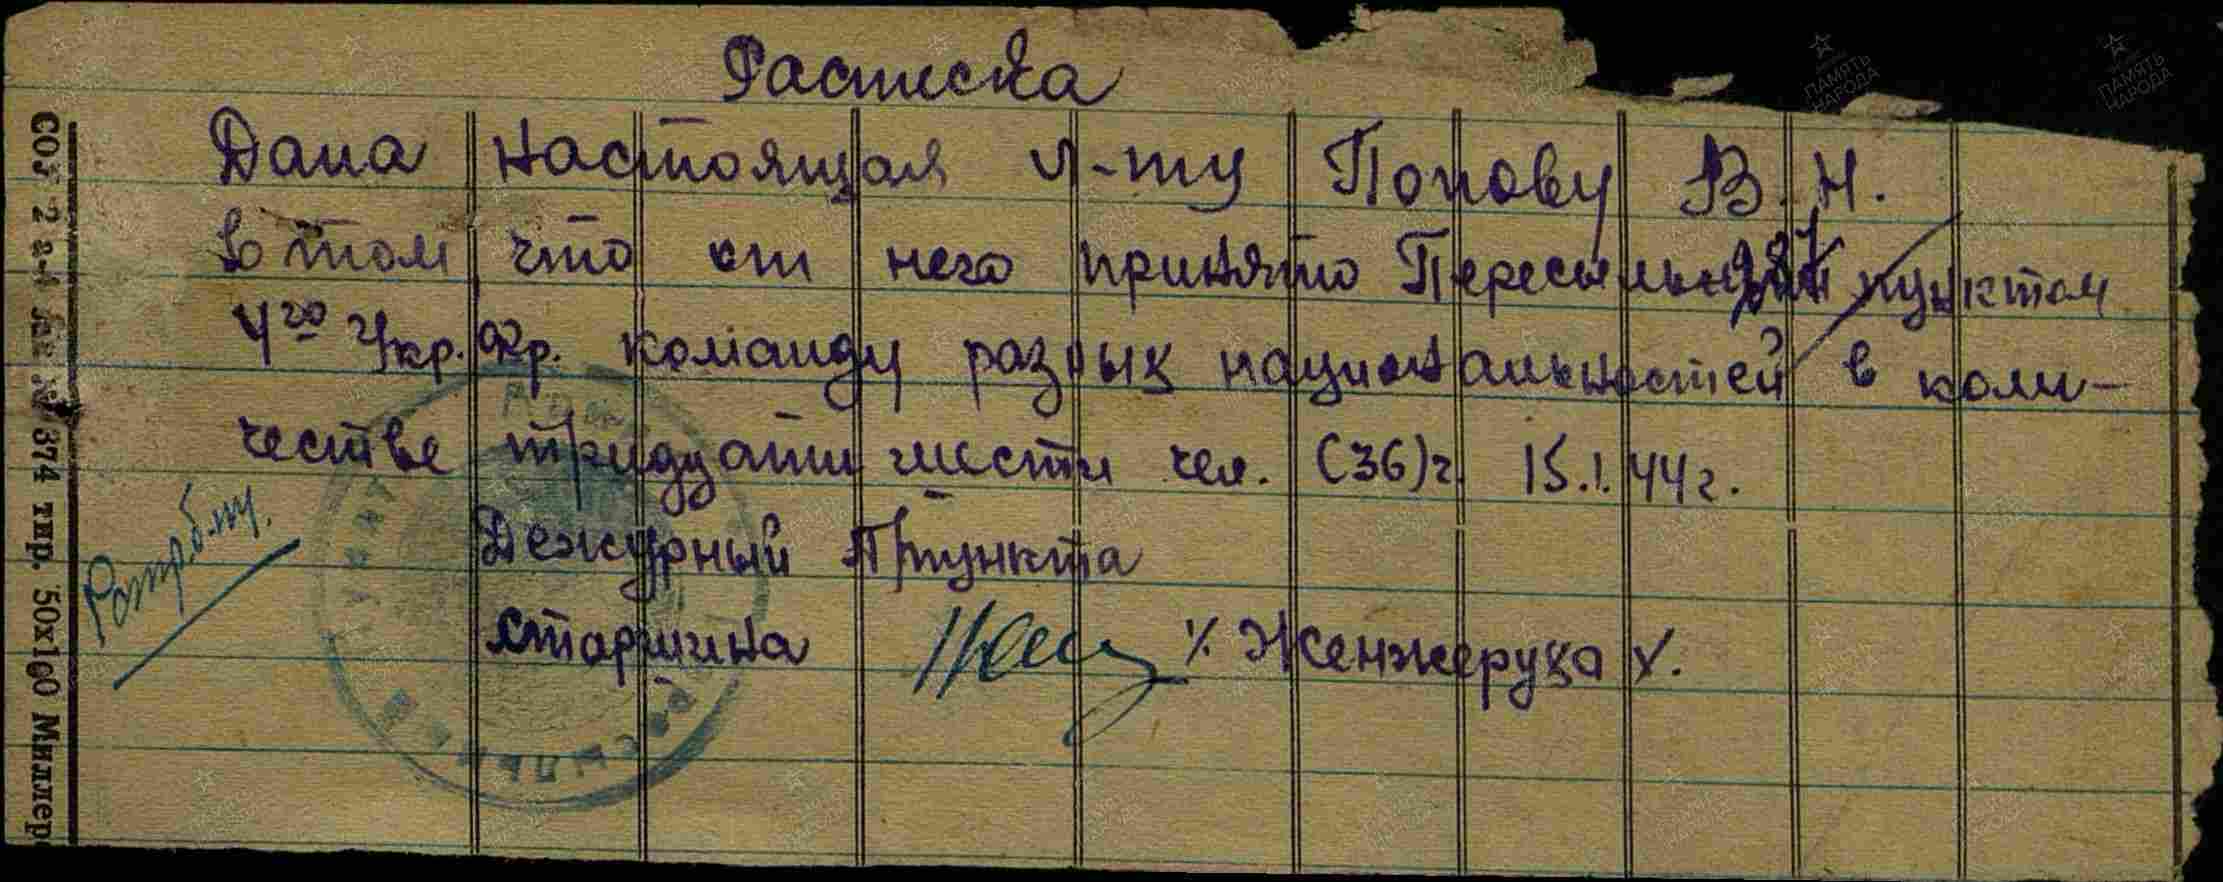 Расписка
Дана настоящая л-ту Попову В. Н.
в том что от него принято Пересыльным пунктом
4го Укр. Фр. команду разных национальностей в коли-
честве тридцати шести чел. (36)ч. 15.I.44г.
Дежурный П/пункта
Старшина
/. Женжеруха /.
374 тир. 50х100 Миллер
ПАМЯТЬ НАРОДА